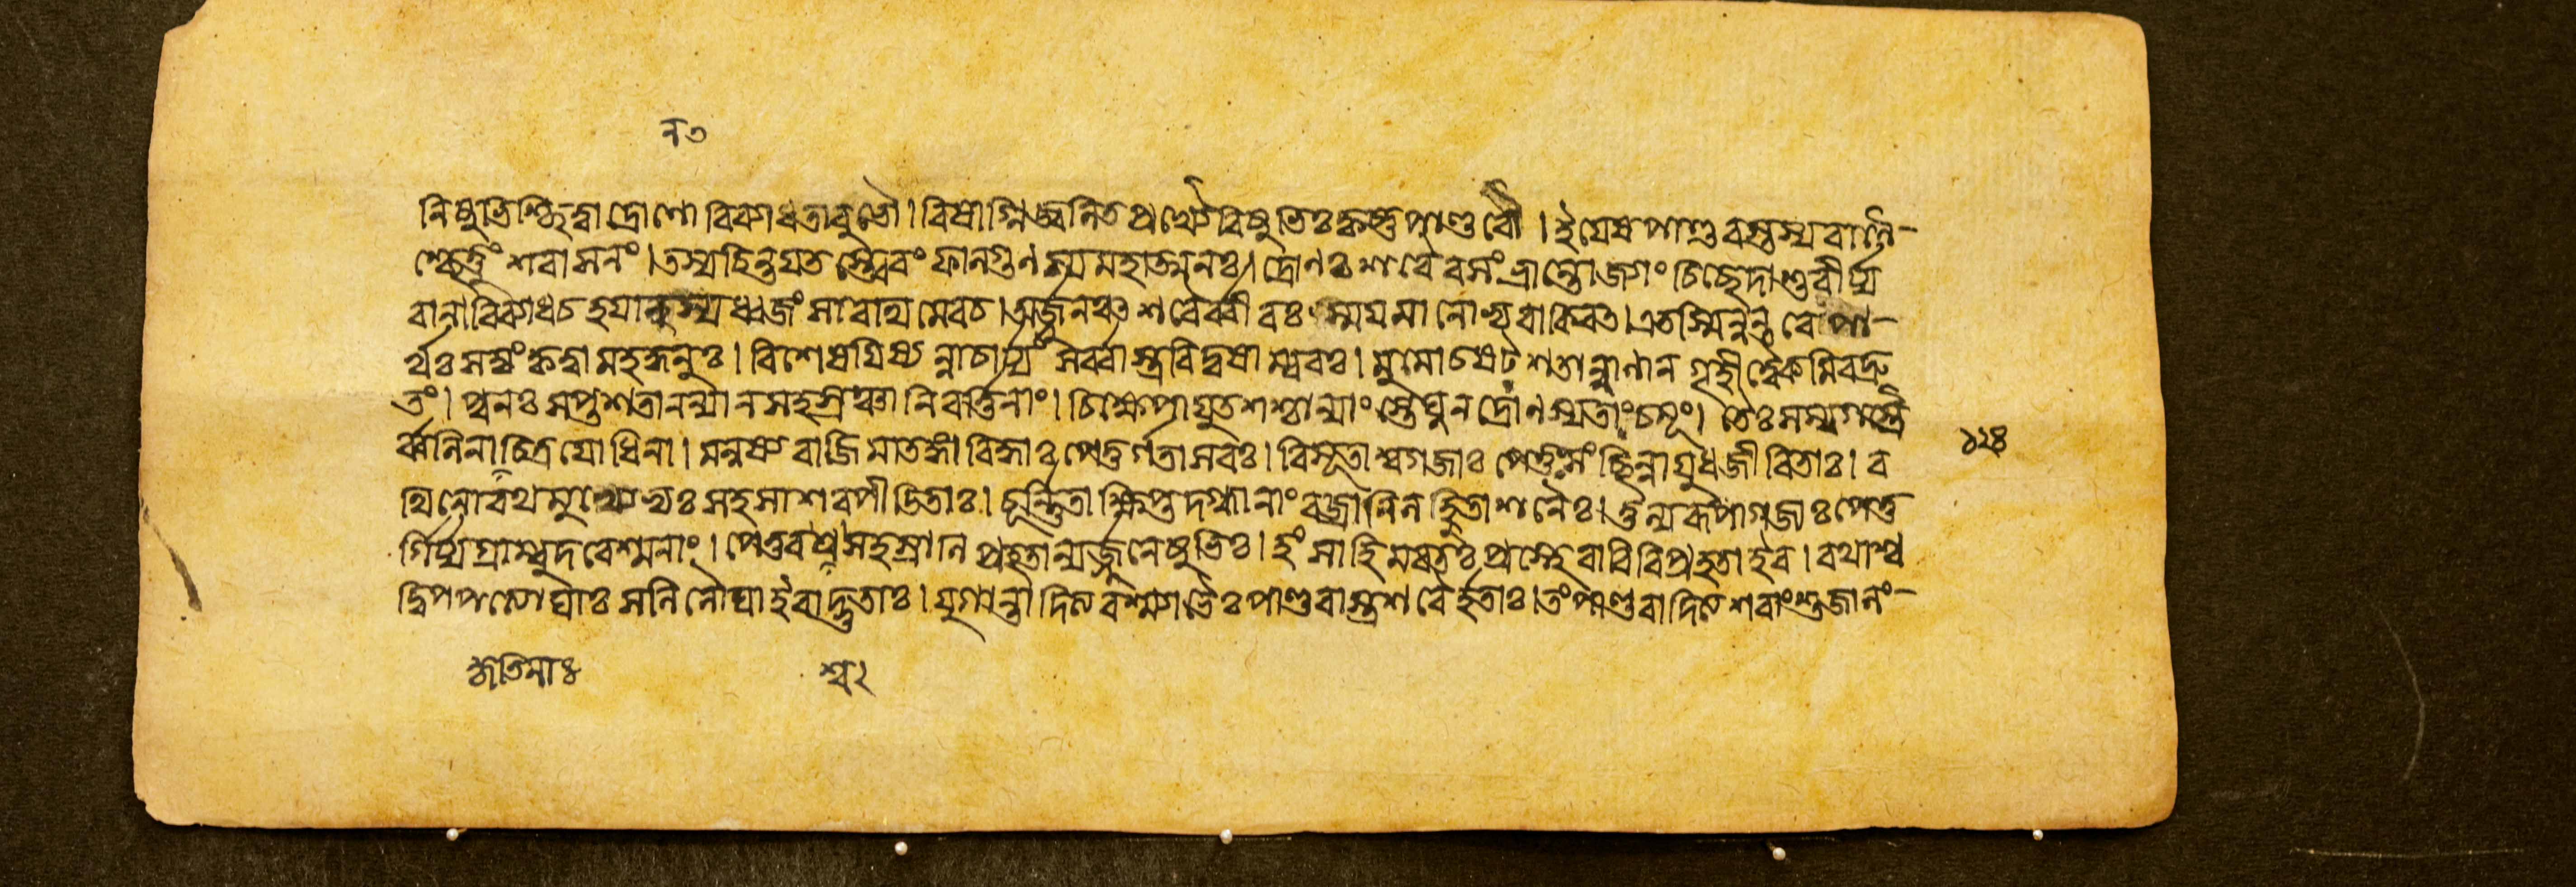 নত
নিষুভিশ্ছিত্বা দ্রোণো বিব্যাধ তাবুভৌ। বিষাগ্নিজ্বলিতপ্রখ্যৈরিষুভিঃ কৃষ্ণপাণ্ডবৌ। ইয়েষ পাণ্ডবস্তস্য বাণৈ-
শ্ছেত্তুং শরাসনং। তস্য চিন্তয়ত স্ত্বেবং ফালগুনস্য মহাত্মনঃ। দ্রোণঃ শরৈরসংভ্রান্তো জ্যাং চিচ্ছেদাশু বীর্য্য
বান। বিব্যাধ চ হয়ানস্য ধ্বজং সারথিমেব চ। অর্জুনঞ্চ শরৈর্ব্বীরঃ স্ময়মানোভ্যবাকিরত। এতস্মিন্নন্তরে পা-
র্থঃ সজ্যং কৃত্বা মহদ্ধনুঃ। বিশেষয়িষ্যন্নাচার্য্যং সর্ব্বাস্ত্রবিদুষাম্বরঃ। মুমোচ ষট শতান্বাণান গৃহীত্বৈকমিবদ্রু
তং। পুনঃ সপ্তশতানন্যান সহস্রঞ্চানিবর্ত্তিনাং। চিক্ষেপায়ুতশশ্চান্যাংস্তেঘ্নন দ্রোণস্য তাং চমূং। তৈঃ সম্যগস্তৈ
র্ব্বলিনা চিত্রয়োধিনা। মনুষ্যবাজিমাতঙ্গা বিদ্ধাঃ পেতুর্গতাসবঃ। বিসূতাশ্বগজাঃ পেতুঃ সংছিন্নায়ুধজীবিতাঃ। র
থিনো রথমুখ্যেভ্যঃ সহসা শরপীডিতাঃ। চূর্ন্নিতাক্ষিপ্তদগ্ধানাং বজ্রানিলহুতাশনৈঃ। তুল্যরূপা গজাঃ পেতু
র্গির্য্যগ্রাম্বুদবেশ্মনাং। পেতুরশ্বসহস্রানি প্রহতান্যর্জুনেষুভিঃ। হংসা হিমবতঃ প্রস্থে বারিবিপ্রহতা ইব। রথাশ্ব
দ্বিপপত্ত্যোঘাঃ সলিলৌঘা ইবাদ্ভুতাঃ। যুগান্তাদিত্যরশ্ম্যাভৈঃ পাণ্ডবাস্ত্রশরৈর্হতাঃ। তং পাণ্ডবাদিত্যশরাংশুজালং-
১২৪